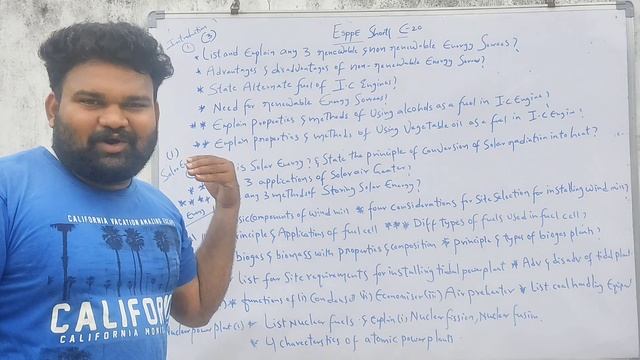 Introduction
(1) (3)
ESPPE Shorts C-20
* List and Explain any 3 renewable & non renewable Energy Sources?
* Advantages & disadvantages of non-renewable Energy Sources?
* State Alternate fuel of I.C Engines?
* Need for renewable Energy Sources?
** Explain properties & methods of Using alcohols as a fuel in I.C Engine?
** Explain properties & methods of Using Vegetable oil as a fuel in I.C Engine?
(1) is Solar Energy? & State the principle of Conversion of Solar radiation into heat?
Solar
3 applications of solar air heater?
**** any 3 methods of Storing Solar Energy?
Components of wind mill * four Considerations for Site Selection for installing wind mill
principle & Applications of fuel cell *** Diff Types of fuels used in fuel cell?
biogas & biomass with properties & composition * principle & types of biogas plants?
list four Site requirements for installing tidal powerplant * Adv & disadv of tidal plant
* functions of (i) Condenser (ii) Economiser (iii) Air preheater * List coal handling Equip
Nuclear power plant (1) * List Nuclear fuels & Explain (i) Nuclear fission, Nuclear fusion.
* 4 charecteristics of atomic power plants
CALIFORNIA VACATION AMAZING
CALIFOR
CALIFORNIA